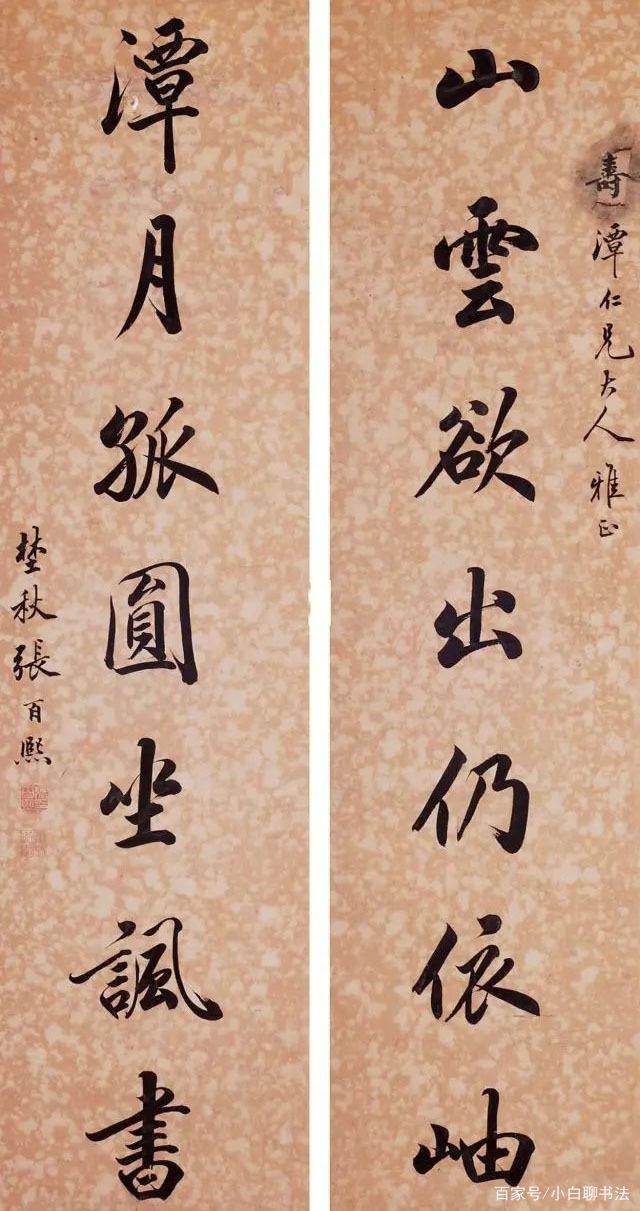 壽潭仁兄大人雅正
山雲欲出仍依岫
潭月孤圓坐諷書
埜秋張百熙
百家号/小白聊书法